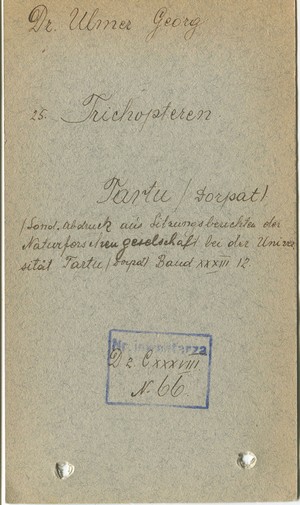 Dr. Ulmer Georg
25. Trichopteren
Tartu /Dorpat/
/Sond. Abdruck aus Sitzungsberichten der
Naturforschengeselschaft bei der Univer
sität Tartu /Dorpat/ Band XXXIII 12.
Nr. inwentarza
Dz. C XXXVIII
N. 66